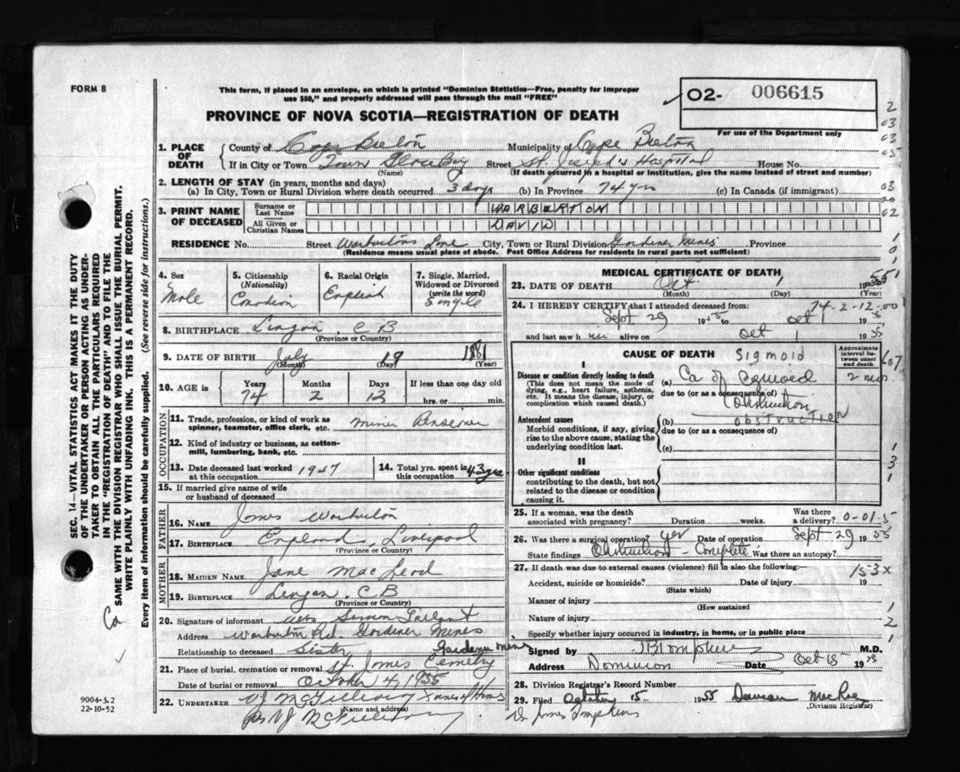 FORM 8
This form, if placed in an envelope, on which is printed "Dominion Statistics—Free, penalty for improper
use $50," and properly addressed will pass through the mail "FREE"
PROVINCE OF NOVA SCOTIA—REGISTRATION OF DEATH
O2- 006615
For use of the Department only
1. PLACE OF DEATH
County of Cape Breton Municipality of Cape Breton
If in City or Town Town Glace Bay Street St. Joseph's Hospital House No.
(Name) (If death occurred in a hospital or institution, give the name instead of street and number)
2. LENGTH OF STAY (in years, months and days)
(a) In City, Town or Rural Division where death occurred 3 days (b) In Province 74 yrs (c) In Canada (if immigrant)
3. PRINT NAME OF DECEASED
Surname or Last Name WARBURTON
All Given or Christian Names DAVID
RESIDENCE No. Street Warburtons Lane City, Town or Rural Division Gardiner Mines Province
(Residence means usual place of abode. Post Office Address for residents in rural parts not sufficient)
4. Sex Male
5. Citizenship (Nationality) Canadian
6. Racial Origin English
7. Single, Married, Widowed or Divorced (write the word) Single
8. BIRTHPLACE Lingan, C B
(Province or Country)
9. DATE OF BIRTH July 19 1881
(Month) (Day) (Year)
10. AGE in Years Months Days If less than one day old
74 2 12 hrs. or min.
OCCUPATION
11. Trade, profession, or kind of work as spinner, teamster, office clerk, etc. Miner
12. Kind of industry or business, as cotton-mill, lumbering, bank, etc.
13. Date deceased last worked at this occupation 1947
14. Total yrs. spent in this occupation 43 yrs
15. If married give name of wife or husband of deceased
FATHER
16. NAME James Warburton
17. BIRTHPLACE England, Liverpool
(Province or Country)
MOTHER
18. MAIDEN NAME Jane MacLeod
19. BIRTHPLACE Lingan, C.B
(Province or Country)
20. Signature of informant
Address Warburton Rd. Gardiner Mines
Relationship to deceased Sister
21. Place of burial, cremation or removal St. James Cemetery Gardiner Mines
Date of burial or removal October 4, 1955
22. UNDERTAKER
(Name and address)
9004-3.2
22-10-52
MEDICAL CERTIFICATE OF DEATH
23. DATE OF DEATH Oct. 1 1955
(Month) (Day) (Year)
74-2-12-00
24. I HEREBY CERTIFY that I attended deceased from:
Sept 29 1955 to Oct 1 1955
and last saw him alive on Oct 1 1955
CAUSE OF DEATH
Approximate interval between onset and death
I
Sigmoid
Disease or condition directly leading to death (a) Ca of 2 mos.
(This does not mean the mode of dying, e.g., heart failure, asthenia, etc. It means the disease, injury, or complication which caused death.)
due to (or as a consequence of)
Obstruction
Antecedent causes (b) obstruction
Morbid conditions, if any, giving rise to the above cause, stating the underlying condition last.
due to (or as a consequence of)
(c)
II
Other significant conditions
contributing to the death, but not related to the disease or condition causing it.
25. If a woman, was the death associated with pregnancy? Duration weeks. Was there a delivery?
26. Was there a surgical operation? Yes Date of operation Sept 29 1955
State findings Obstruction - Complete Was there an autopsy?
27. If death was due to external causes (violence) fill in also the following:
153X
Accident, suicide or homicide? Date of injury 19
(State which)
Manner of injury
(How sustained)
Nature of injury
Specify whether injury occurred in industry, in home, or in public place
Signed by M.D.
Address Dominion Date Oct 15 1955
28. Division Registrar's Record Number
29. Filed October 15 1955
(Division Registrar)
Dr. James Tompkins
SEC. 14—VITAL STATISTICS ACT MAKES IT THE DUTY
OF THE UNDERTAKER OR PERSON ACTING AS UNDERTAKER
TO OBTAIN ALL THE PARTICULARS REQUIRED
IN THE "REGISTRATION OF DEATH" AND TO FILE THE
SAME WITH THE DIVISION REGISTRAR WHO SHALL ISSUE THE BURIAL PERMIT.
WRITE PLAINLY WITH UNFADING INK. THIS IS A PERMANENT RECORD.
Every item of information should be carefully supplied. (See reverse side for instructions.)